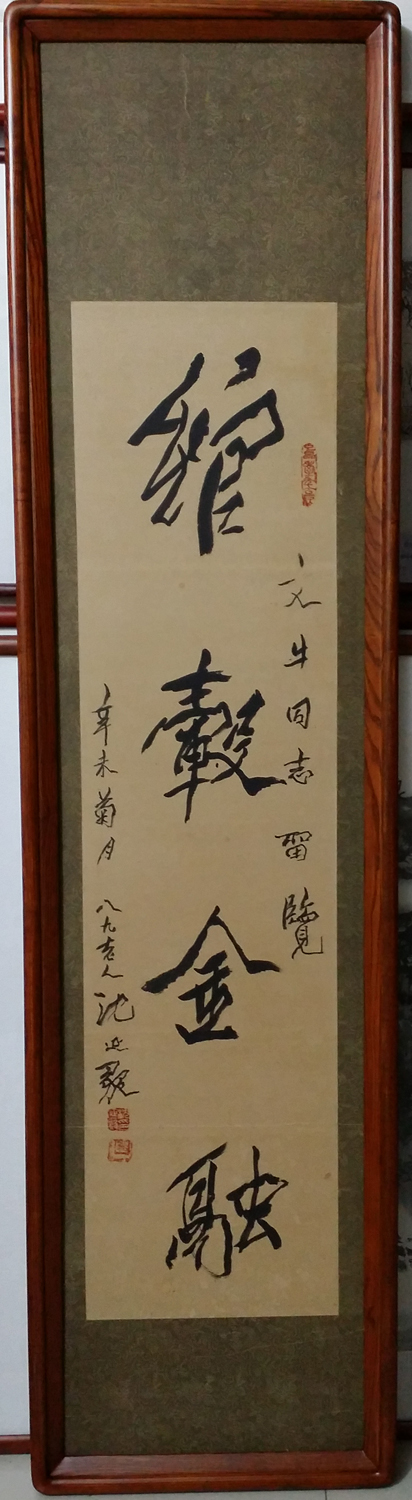 文生同志留覽
轂金融
辛未菊月 八九老人沈延毅